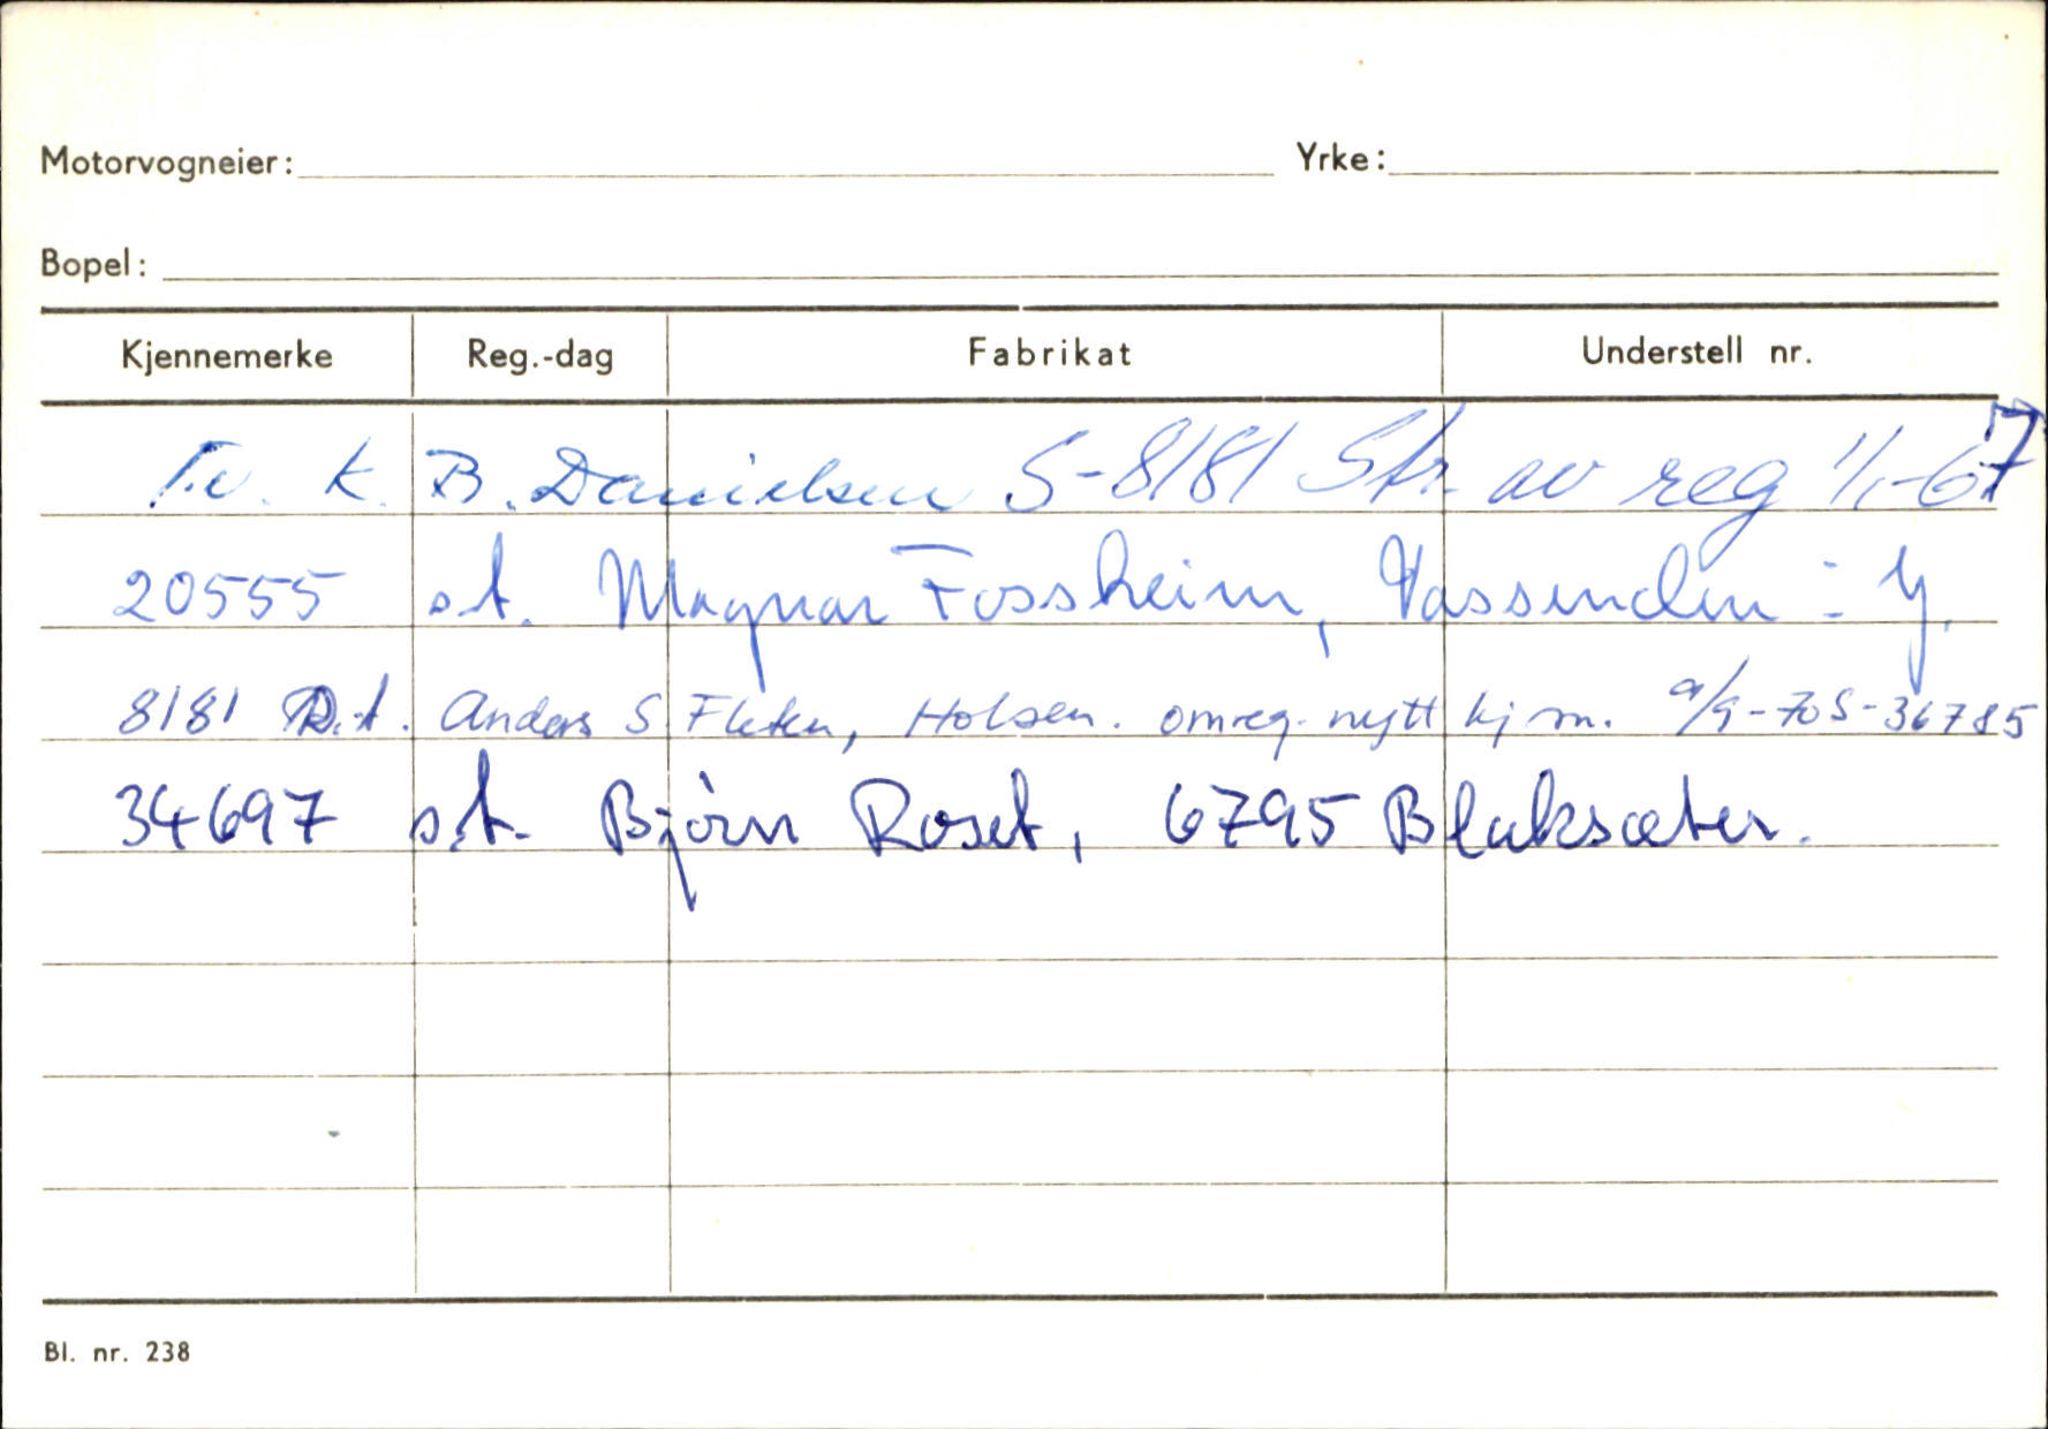 Motorvogneier: Yrke:
Bopel:
Kjennemerke Reg.-dag Fabrikat Understell nr.
K. B. Danielsen S-8181 Str. av reg 1/1-67
20555 s.t. Magnar Fossheim, Vassenden i J.
8181 s.t. Anders S Fleten, Holsen. omreg. nytt kj m. 9/9-70 S-36785
34697 s.t. Bjørn Roset, 6795 Blaksæter.
Bl. nr. 238